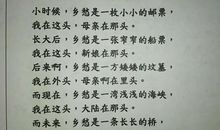 小时候，乡愁是一枚小小的邮票，
我在这头，母亲在那头。
长大后，乡愁是一张窄窄的船票，
我在这头，新娘在那头。
后来啊，乡愁是一方矮矮的坟墓，
我在外头，母亲啊在里头。
而现在，乡愁是一湾浅浅的海峡，
我在这头，大陆在那头。
而未来，乡愁是一条长长的桥，